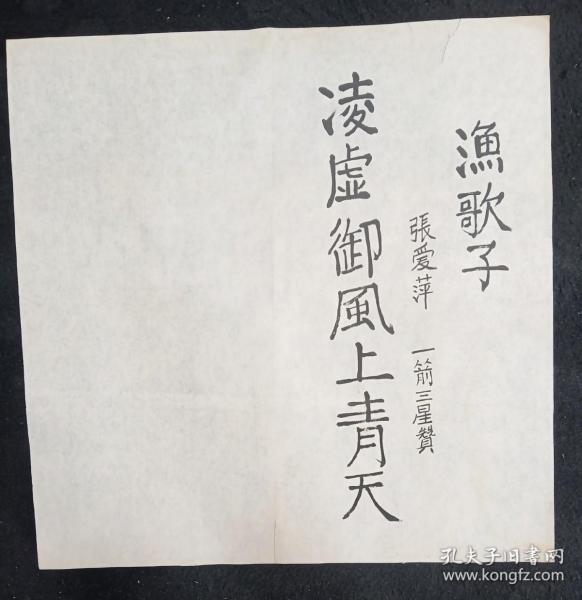 漁歌子
張愛萍 一箭三星贊
凌虚御風上青天
孔夫子旧书网
www.kongfz.com